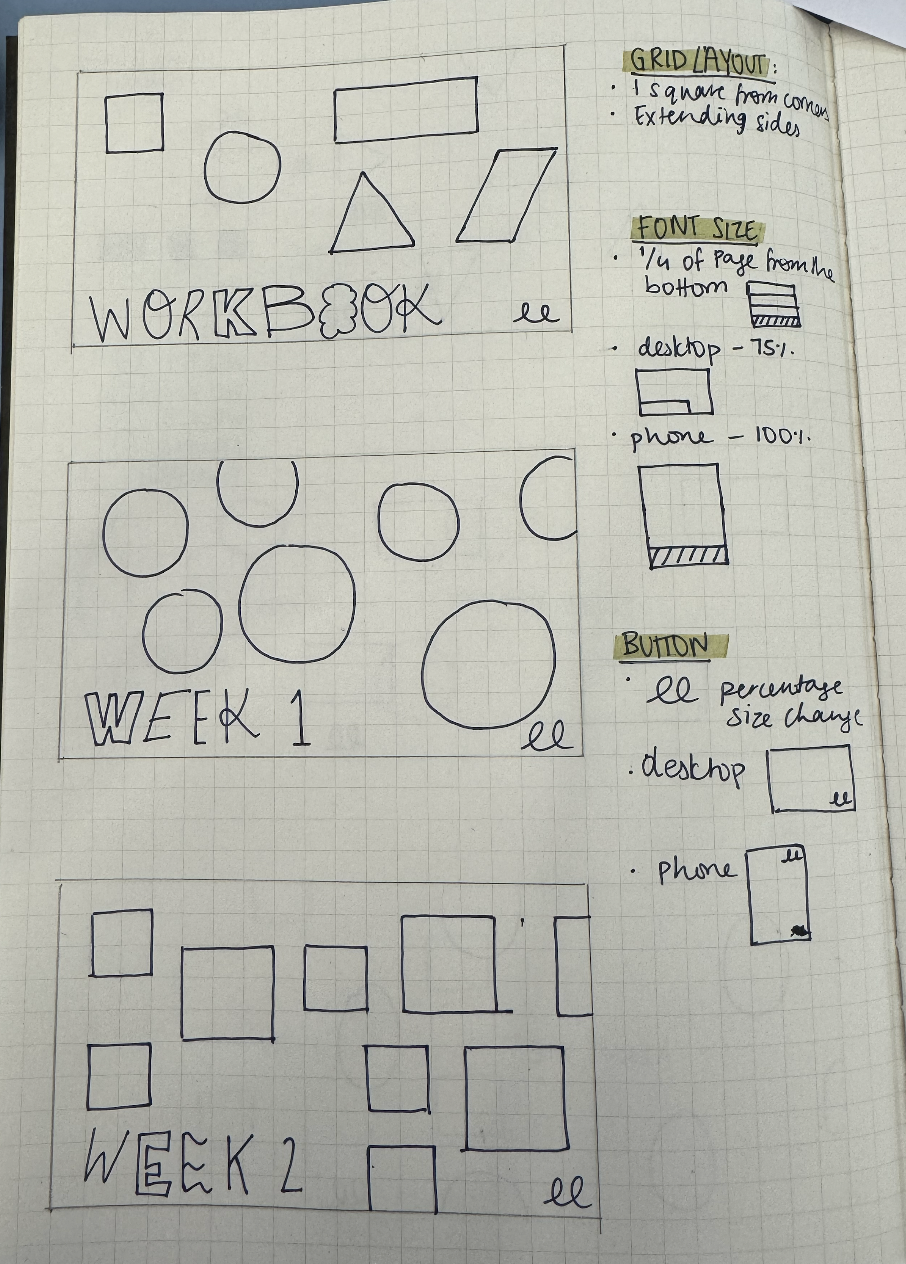 WORKBOOK
ee
WEEK 1
ee
WEEK 2
ee
GRID LAYOUT:
· 1 square from corners
· Extending sides
FONT SIZE
· 1/4 of page from the
bottom
· desktop - 75%.
· phone - 100%.
BUTTON
· ee percentage
size change
· desktop
ee
· phone
ee